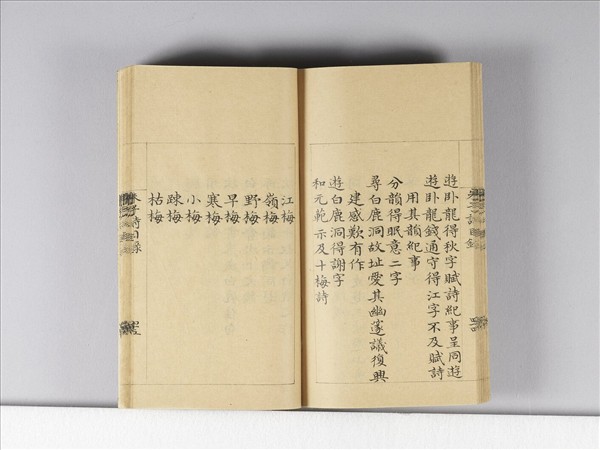 遊卧龍得秋字賦詩紀事呈同遊
遊卧龍餞通守得江字不及賦詩
用其韻紀事
分韻得眠意二字
尋白鹿洞故址愛其幽邃議復興
建感歎有作
遊白鹿洞得謝字
和元範示及十梅詩
江梅
嶺梅
野梅
早梅
寒梅
小梅
疎梅
枯梅